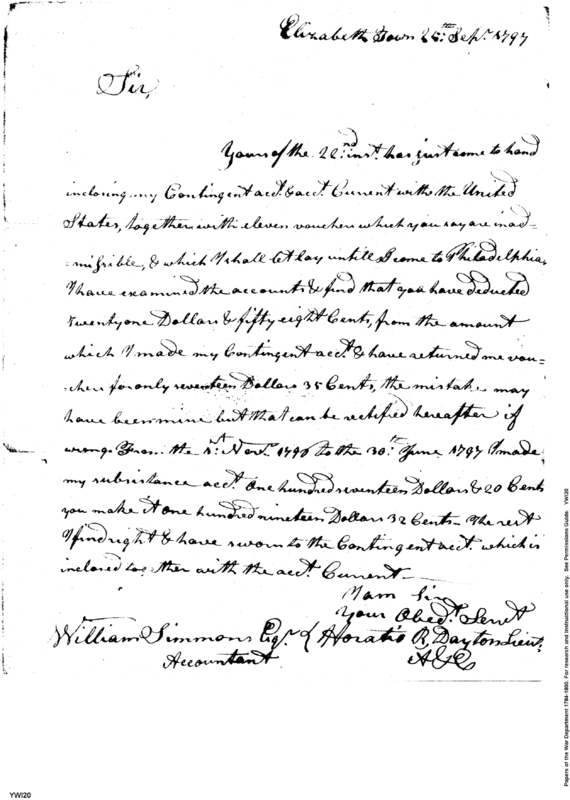 Elizabeth Town 26th. Sepr. 1797
Sir,
Yours of the 22nd. inst. has just come to hand
inclosing my Contingent acct. & acct. Current with the United
States, together with eleven vouchers which you say are inad-
-missible, & which I shall let lay untill I come to Philadelphia,
I have examined the accounts & find that you have deducted
twenty one Dollars & fifty eight Cents, from the amount
which I made my Contingent acct. & have returned me vou-
-chers for only seventeen Dollars 35 Cents, the mistake may
have been mine but that can be rectified hereafter if
wrong. From the 1st. Novr. 1796 to the 30th. June 1797 I made
my subsistance acct. One hundred seventeen Dollars & 20 Cents
you make it One hundred nineteen Dollars 32 Cents - The rest
I find right & have sworn to the Contingent acct. which is
inclosed together with the acct. Current -
I am Sir
Your Obedt. Servt
William Simmons Esqr. { Horatio R. Dayton Lieut.
Accountant A&E
Papers of the War Department 1784-1800. For research and instructional use only. See Permissions Guide. YWI20
YWI20